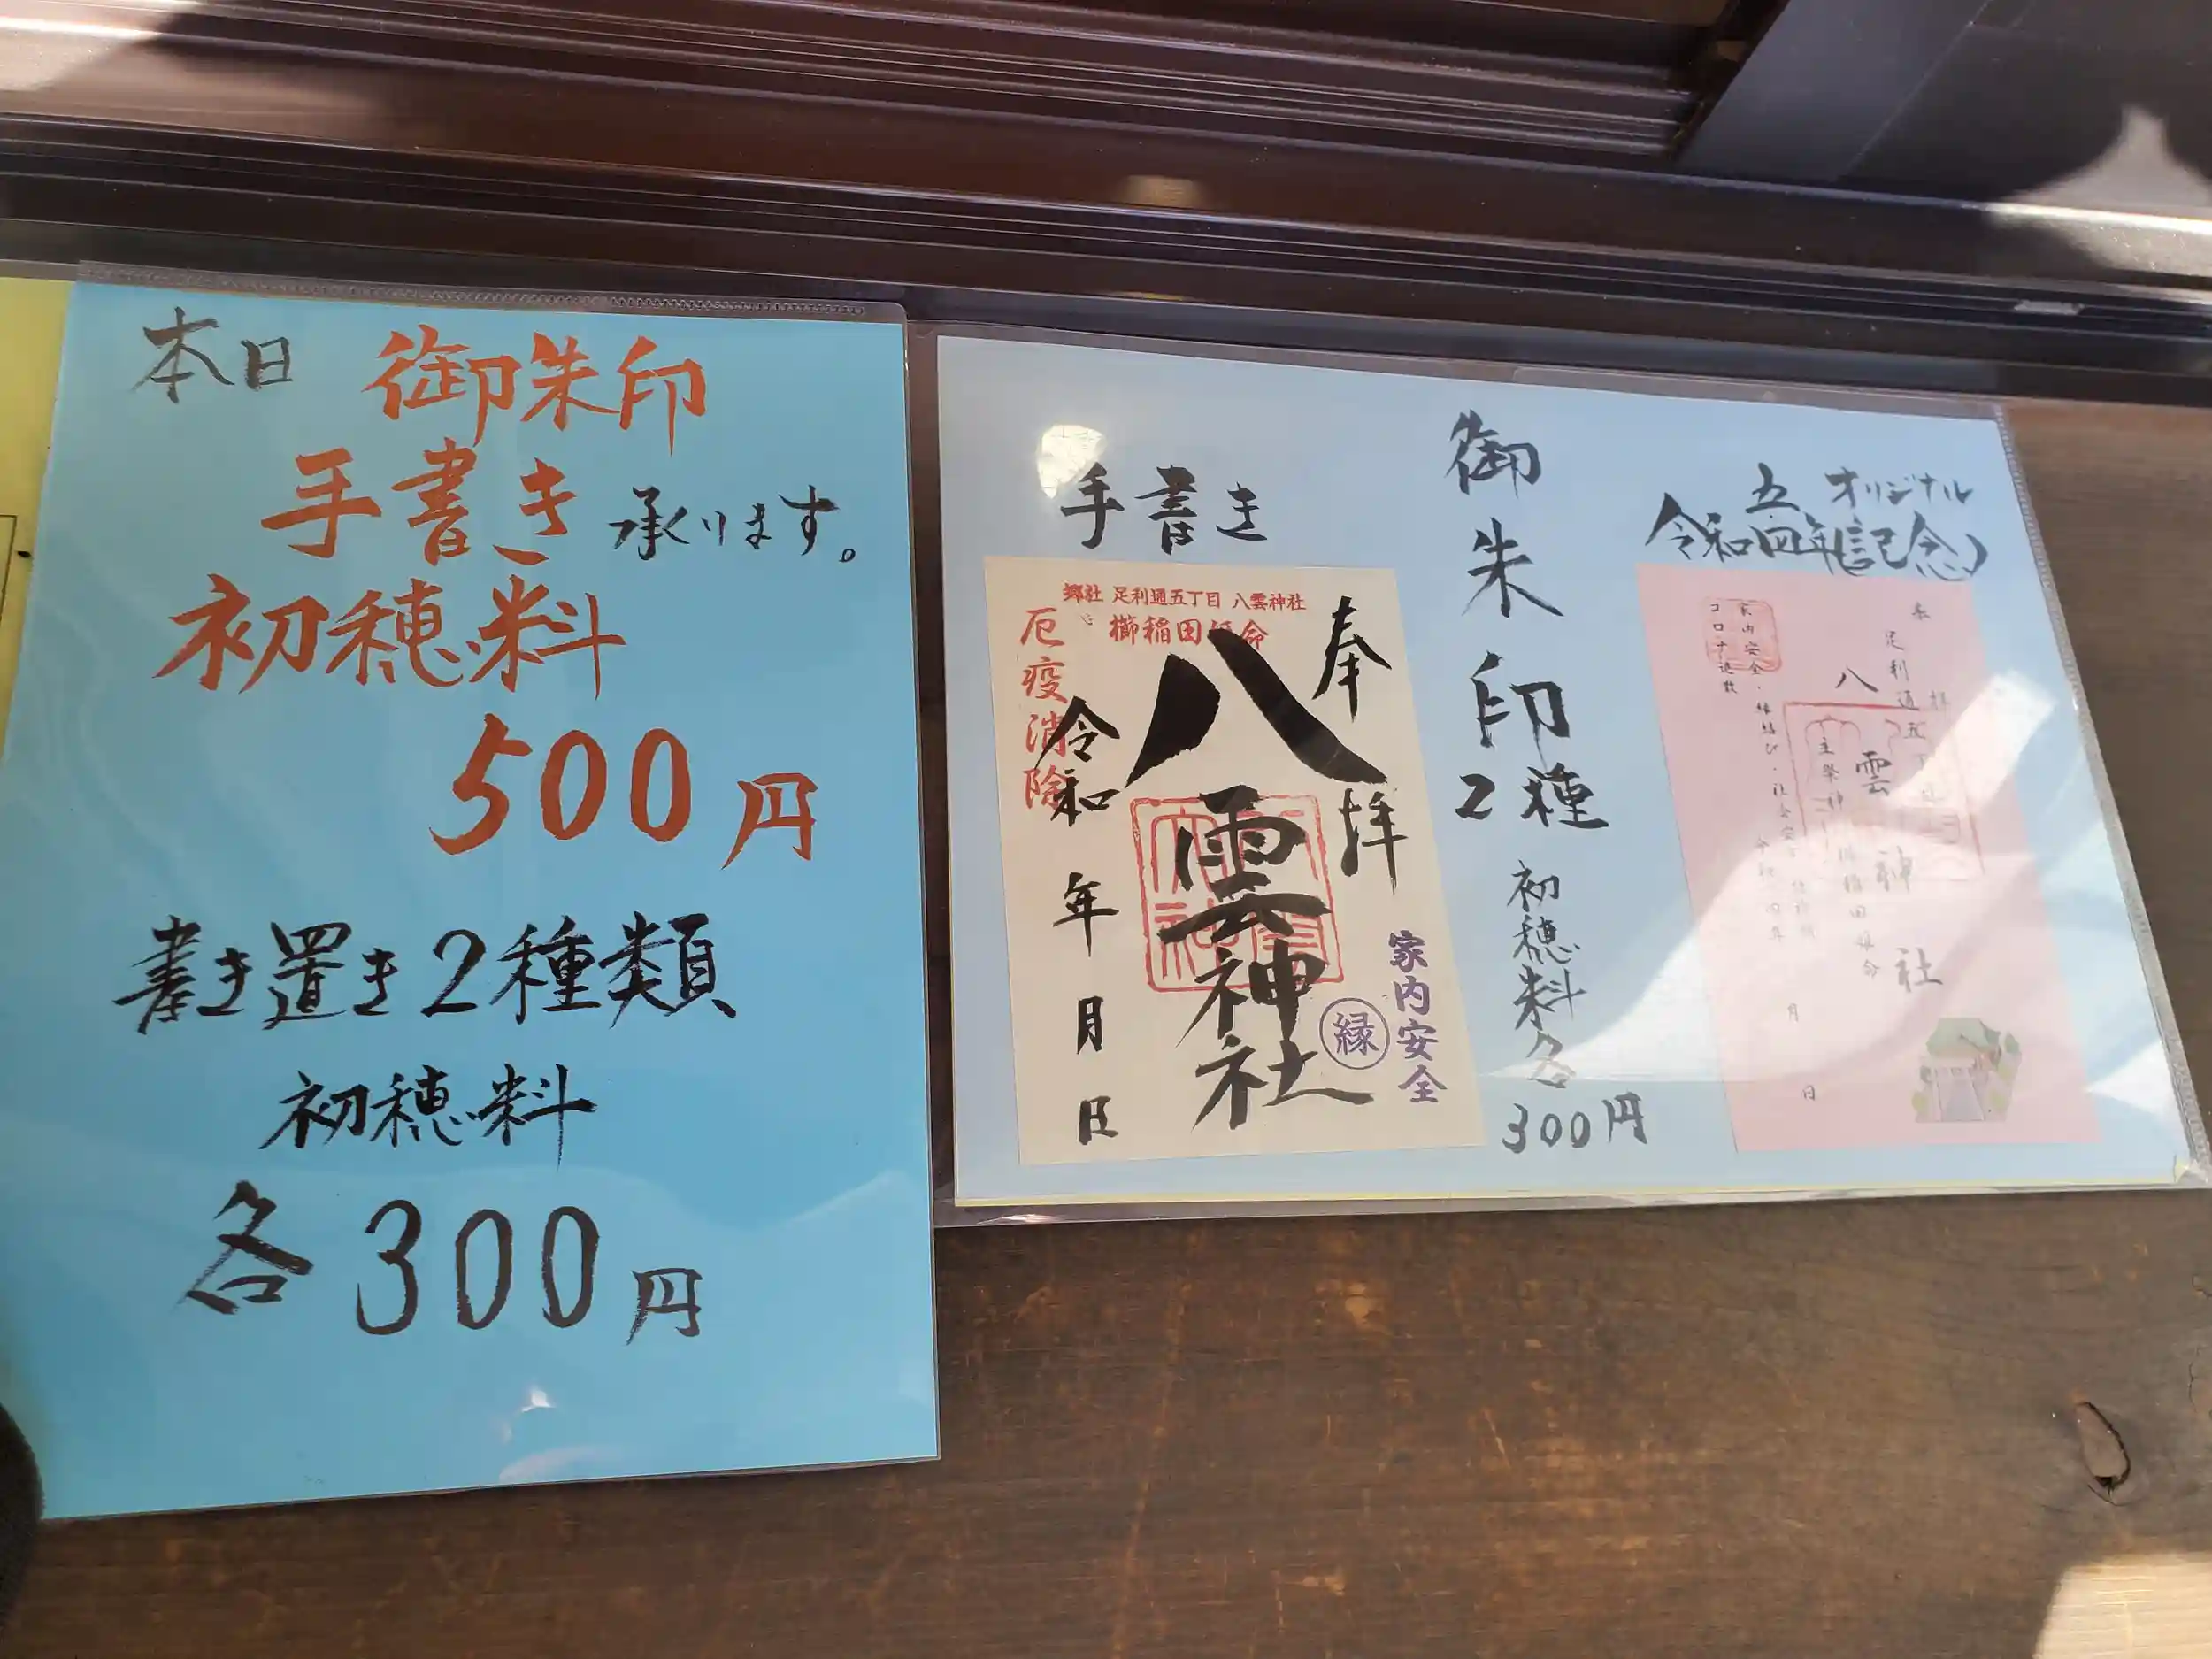 本日 御朱印
手書き承ります。
初穂料
500円
書き置き2種類
初穂料
各300円
手書き
郷社 足利通五丁目 八雲神社
櫛稲田姫命
厄疫消除
奉拝
八雲神社
令和 年 月 日
家内安全
縁
御朱印2種
初穂料各
300円
オリジナル
五
令和四年(記念)
奉拝
足利通五丁目
八雲神社
主祭神
稲田姫命
家内安全・縁結び・社会安
コロナ退散
令和四年 月 日